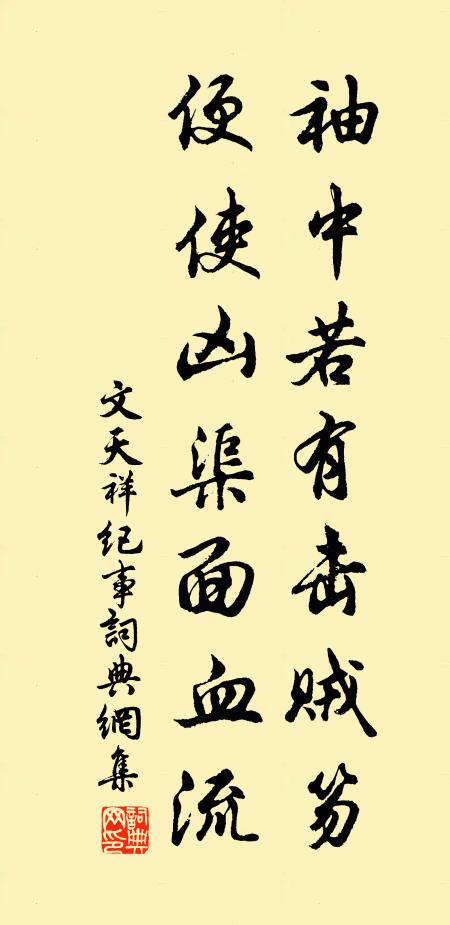 袖中若有击贼笏
便使凶渠面血流
文天祥纪事詞典網集
詞典網印